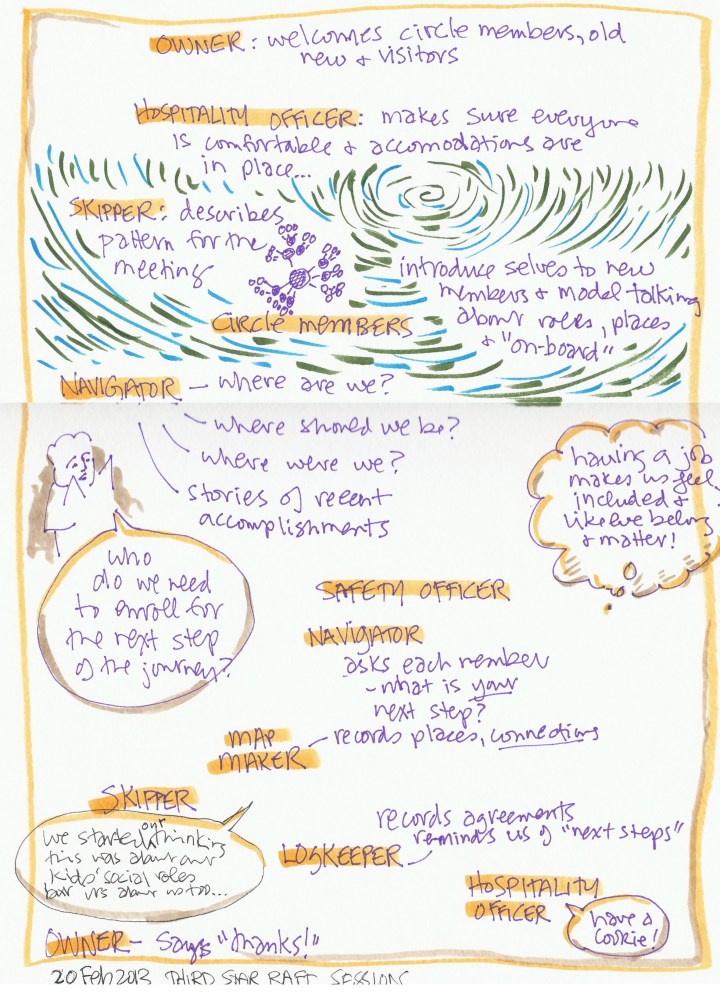 OWNER: welcomes circle members, old
new & visitors
HOSPITALITY OFFICER: makes sure everyone
is comfortable & accomodations are
in place...
SKIPPER: describes
pattern for the
meeting
CIRCLE MEMBERS
introduce selves to new
members & model talking
about roles, places
& "on-board"
NAVIGATOR — where are we?
where should we be?
where were we?
stories of recent
accomplishments
having a job
makes us feel
included &
like we belong
& matter!
who
do we need
to enroll for
the next step
of the journey?
SAFETY OFFICER
NAVIGATOR
asks each member
- what is your
next step?
MAP
MAKER
records places, connections
SKIPPER
we started our thinking
this was about our
kids' social roles
but it's about us too...
records agreements
reminds us of "next steps"
LOGKEEPER
HOSPITALITY
OFFICER
have a
cookie!
OWNER — says "thanks!"
20 Feb 2013 THIRD STAR RAFT SESSION